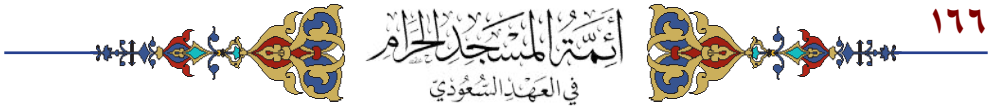 ١٦٦
أَئِمَّةُ المَسْجِدِ الحَرَامِ
في العَهْدِ السُّعُودِيّ